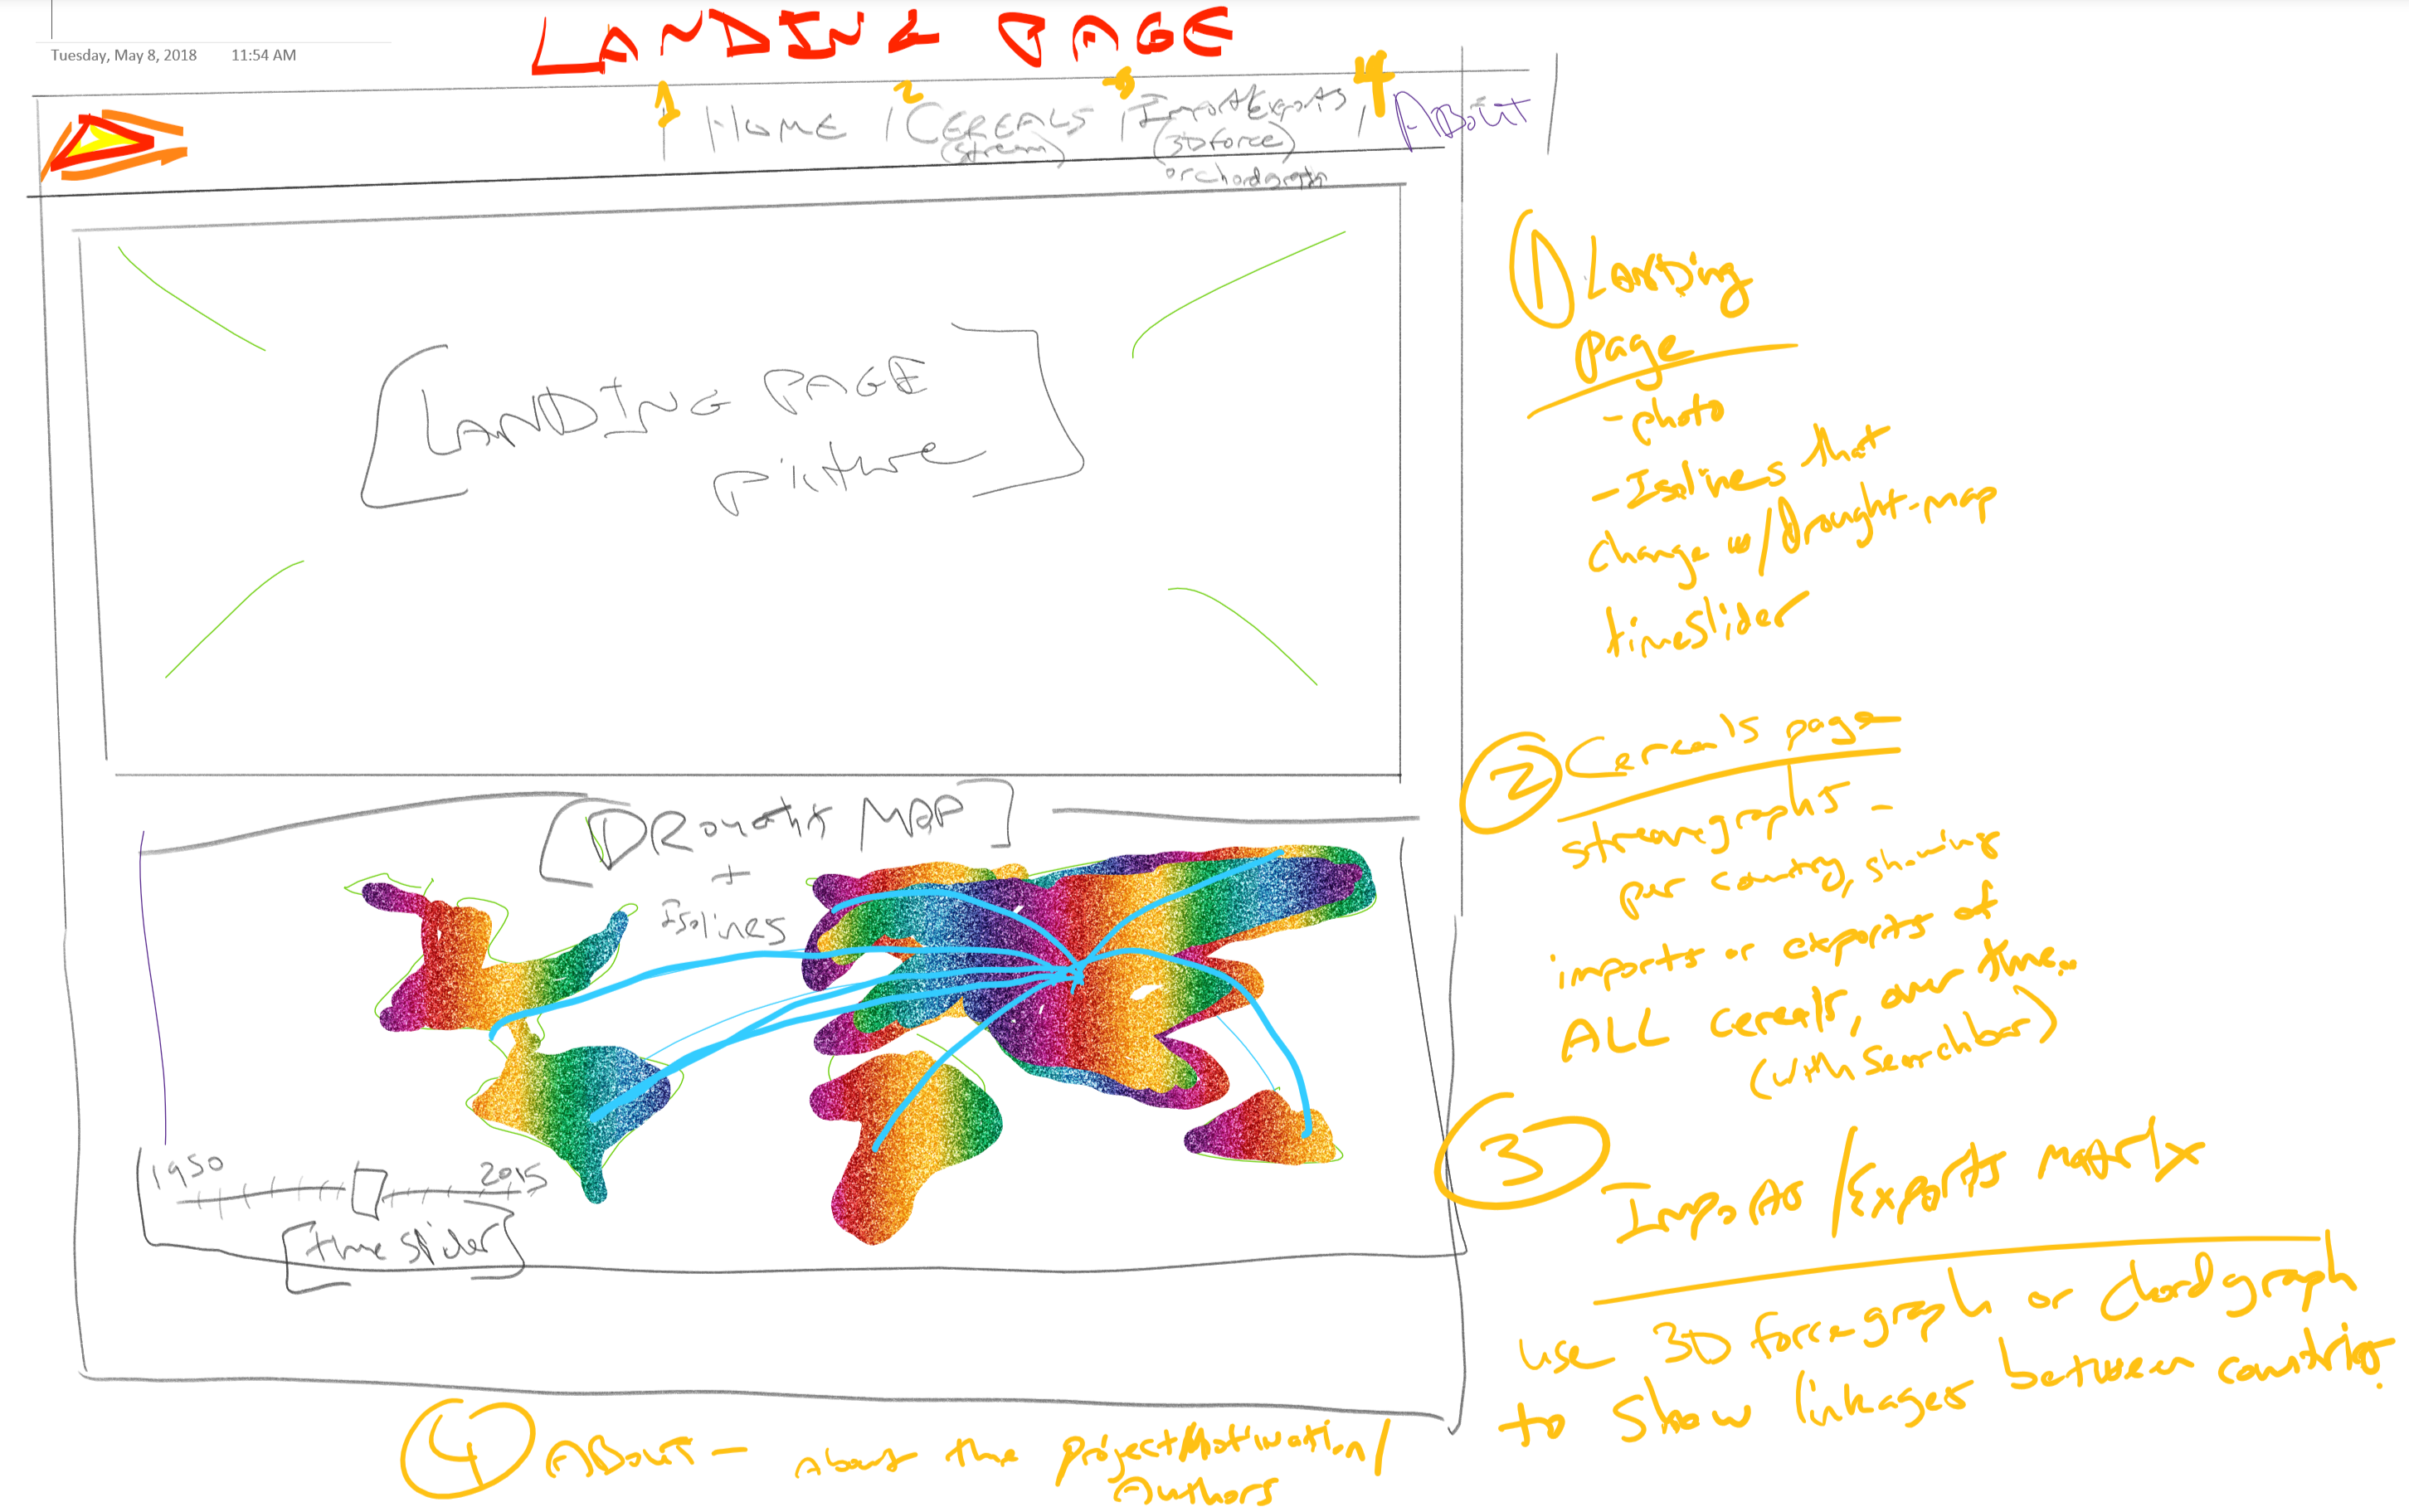 LANDING PAGE
Tuesday, May 8, 2018 11:54 AM
1 2 3 4
| HOME | CEREALS | Import/Exports | ABout |
(stream) (3D force)
or chordgraph
[LANDING PAGE
picture]
[DRought MAP]
+
Isolines
1950 2015
[time slider]
① LANDing
page
- photo
- Isolines that
change w/ Drought-map
timeslider
② Cereals page
streamgraphs -
per country, showing
imports or exports of
ALL cereals, over time..
(with searchbar)
③
Imports/Exports matrix
use 3D force-graph or chordgraph
to show linkages between countries.
④ ABout - About the Project Motivation/
Authors